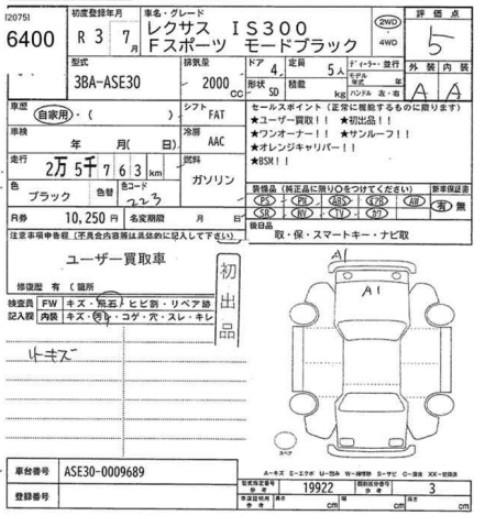 12075I
6400
初度登録年月
R 3 年 7 月
車名・グレード
レクサス IS300
Fスポーツ モードブラック
2WD
・4WD
評価点
5
型式
3BA-ASE30
排気量
2000
CC
ドア
4
定員
5人
ディーラー・並行
モデル年式 年
形状
SD
積載
kg
ハンドル 左・右
外装
内装
A
A
車歴
自家用・( )
シフト
FAT
車検
年 月( 日)
冷房
AAC
走行
2万5千763km
燃料
ガソリン
色
ブラック
色替
色コード
223
R券
10,250円
名変期限
月 日
セールスポイント(正常に機能するものに限ります)
★ユーザー買取!! ★初出品!!
★ワンオーナー!! ★サンルーフ!!
★オレンジキャリパー!!
★BSM!!
装備品(純正品に限り○をつけてください)
PS・PW・ABS・エアB・AW
SR・NV・TV・カワ
新車保証書
有・無
後日品
取・保・スマートキー・ナビ取
注意事項申告欄(不具合内容等は具体的に記入して下さい)
ユーザー買取車
初出品
修復歴 有( )箇所
検査員
記入欄
FW
キズ・飛石・ヒビ割・リペア跡
内装
キズ・汚れ・コゲ・穴・スレ・キレ
小キズ
A1
A1
スペア
A-キズ E-エクボ U-凹み W-補修跡 S-サビ C-腐食 XX-交換済
車台番号
ASE30-0009689
登録番号
型式指定番号
参考
19922
類別区分番号
参考
3
車庫証明用
参考
長さ
cm
幅
cm
高さ
cm